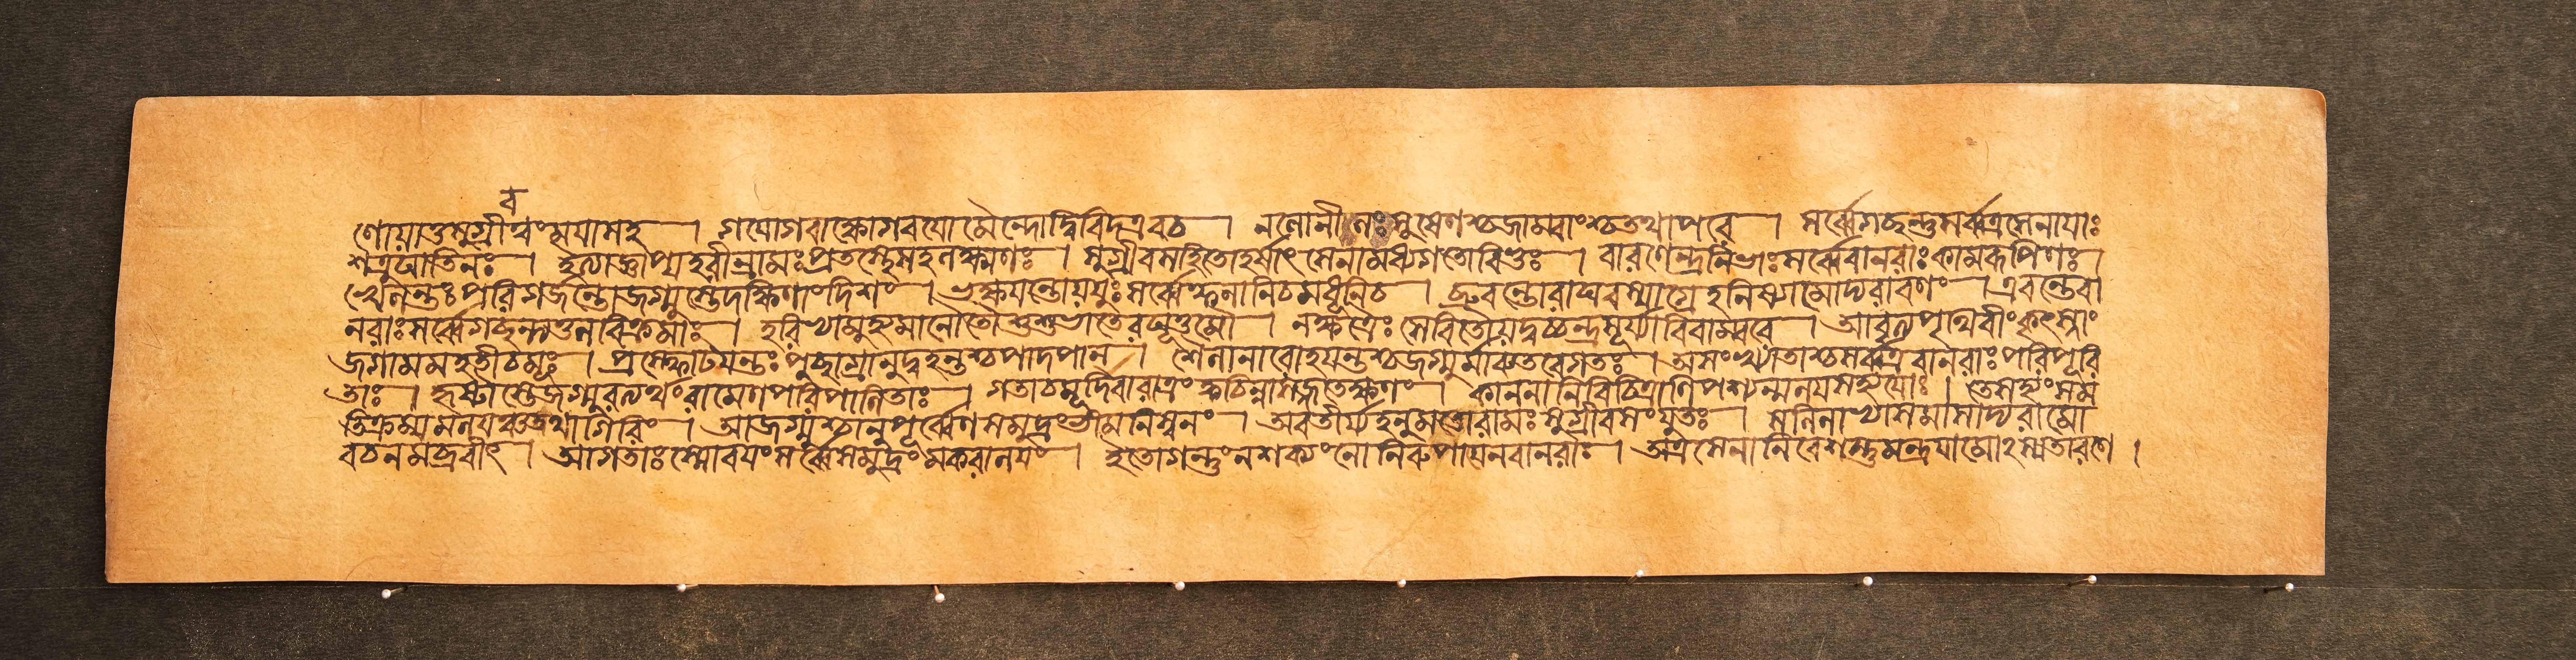 ব
ণোয়াতুসুগ্রীবঃস্বয়ামহ । গযোগবাক্ষোগবযোমৈন্দোদ্বিবিদএবচ । নলোনীলঃসুষেণশ্চজাম্ববাংশ্চতথাপরে । সর্ব্বেগচ্ছন্তুসর্ব্বত্রসেনাযাঃ
শত্রুঘাতিনঃ । ইত্যাজ্ঞাপ্যহরীন্রামঃপ্রতস্থেসহলক্ষ্মণঃ । সুগ্রীবসহিতোহর্ষাৎসেনামধ্যগতোবিভুঃ । বারণেন্দ্রনিভাঃসর্ব্বেবানরাঃকামরূপিণঃ
ক্ষ্বেলন্তঃপরিগর্জন্তোজগ্মুস্তেদক্ষিণাংদিশং । ভক্ষযন্তোযযুঃসর্ব্বেফলানিচমধূনিচ । ব্রুবন্তোরাঘবস্যাগ্রেহনিষ্যামোদ্যরাবণং । এবন্তেবা
নরাঃসর্ব্বেগচ্ছন্ত্যতুলবিক্রমাঃ । হরিভ্যামুহ্যমানৌতৌশুশুভাতেরঘূত্তমৌ । নক্ষত্রৈঃসেবিতৌযদ্বচ্চন্দ্রসূর্য্যাবিবাম্বরে । আবৃত্যপৃথিবীংকৃৎস্নাং
জগামমহতীচমূঃ । প্রস্ফোটযন্তঃপুচ্ছাগ্রানুদ্বহন্তশ্চপাদপান্ । শৈলানারোহযন্তশ্চজগ্মুর্মারুতবেগতঃ । অসংখ্যাতাশ্চসর্ব্বত্রবানরাঃপরিপূরি
তাঃ । হৃষ্টাস্তেজগ্মুরত্যর্থংরামেণপরিপালিতাঃ । গতাচমূর্দিবারাত্রংক্বচিন্নাসজ্জতক্ষণং । কাননানিবিচিত্রাণিপশ্যন্মলযসহ্যযোঃ । তেসহ্যংসম
তিক্রম্যমলযঞ্চতথাগিরিং । আজগ্মুশ্চানুপূর্ব্বেণসমুদ্রংভীমনিস্বনং । অবতীর্য্যহনুমতোরামঃসুগ্রীবসংযুতঃ । সলিলাভ্যাসমাসাদ্যরামো
বচনমব্রবীৎ । আগতাঃস্মোবযংসর্ব্বেসমুদ্রংমকরালযং । ইতোগন্তুংনশক্যংনোনিরুপাযেনবানরাঃ । অত্রসেনানিবেশস্তুমন্ত্রযামোঽস্যতারণে ।